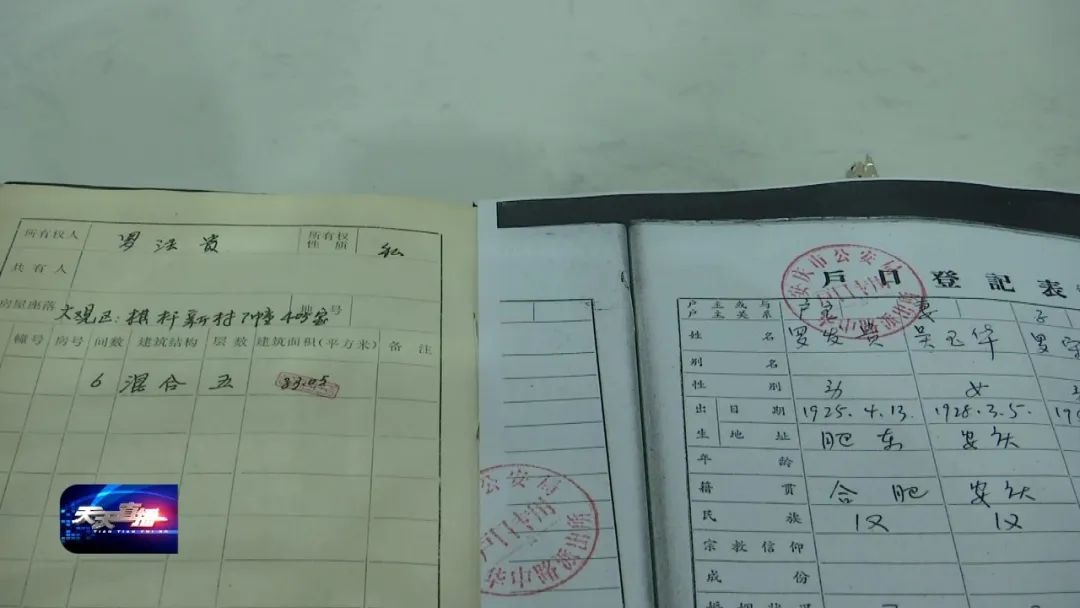 所有权人 罗法贵 所有权性质 私
共有人
房屋座落 大观区:棋杆新村7幢 号
幢号 房号 间数 建筑结构 层数 建筑面积(平方米) 备注
6 混合 五 33.05
天天直播
TIAN TIAN ZHI BO
公安局
户口专用
安庆市公安局
户口专用
户口登记表
户主或与户主关系 户主 妻 子
姓名 罗发贵 吴玉华 罗
别名
性别 男 女
出生 日期 1925.4.13. 1928.3.5.
地址 肥东 安庆
年龄
籍贯 合肥 安庆
民族 汉 汉
宗教信仰
成份